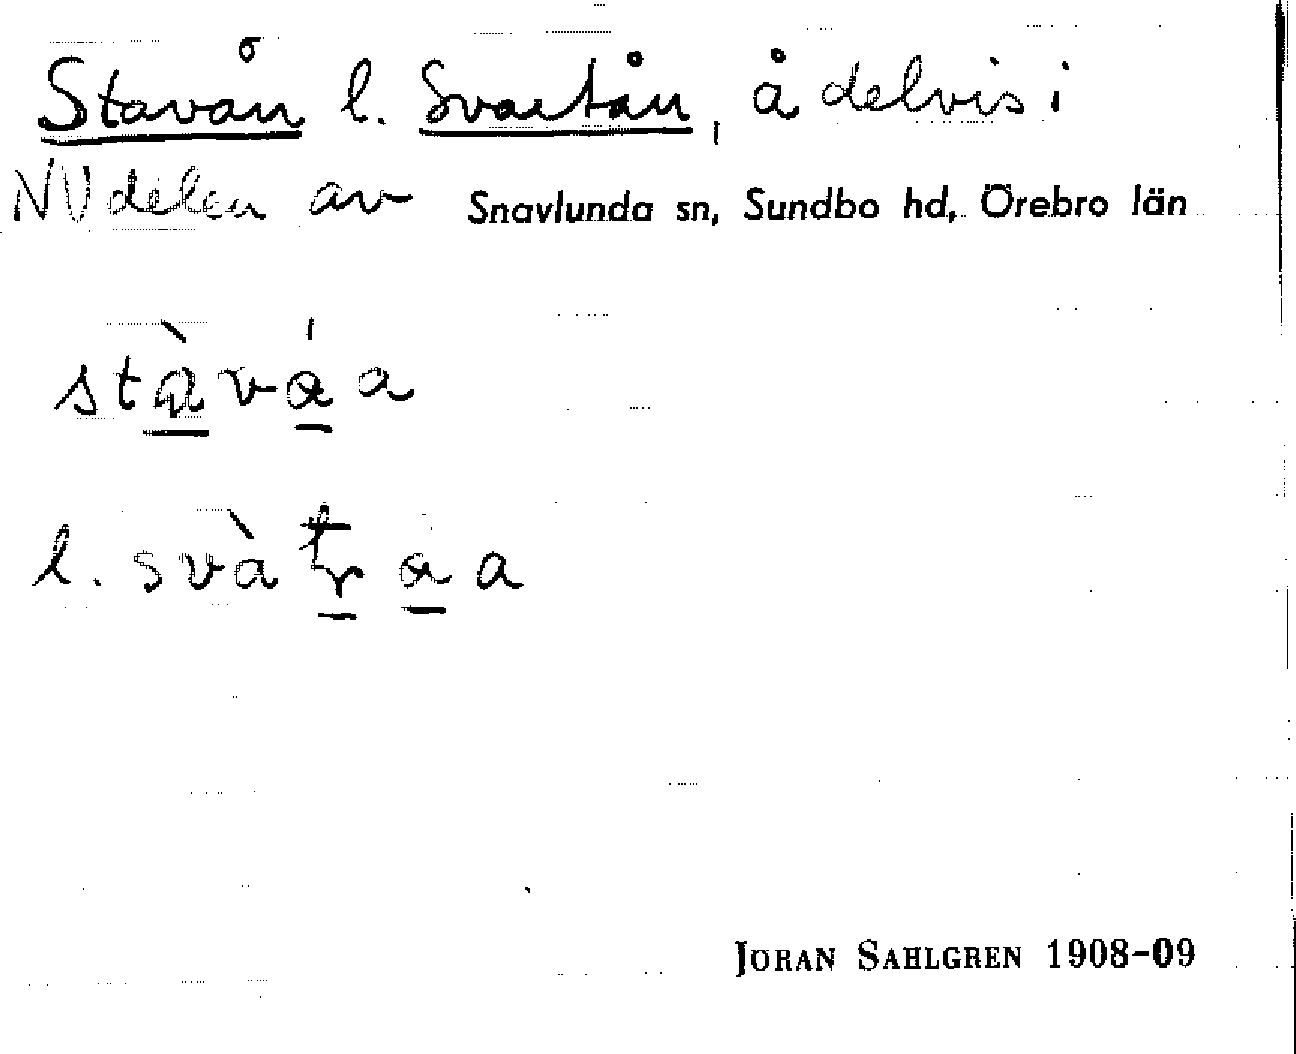 Stavån l. Svartån, å delvis i
NV delen av Snavlunda sn, Sundbo hd, Örebro län
stàváa
l. svàtráa
JÖRAN SAHLGREN 1908-09